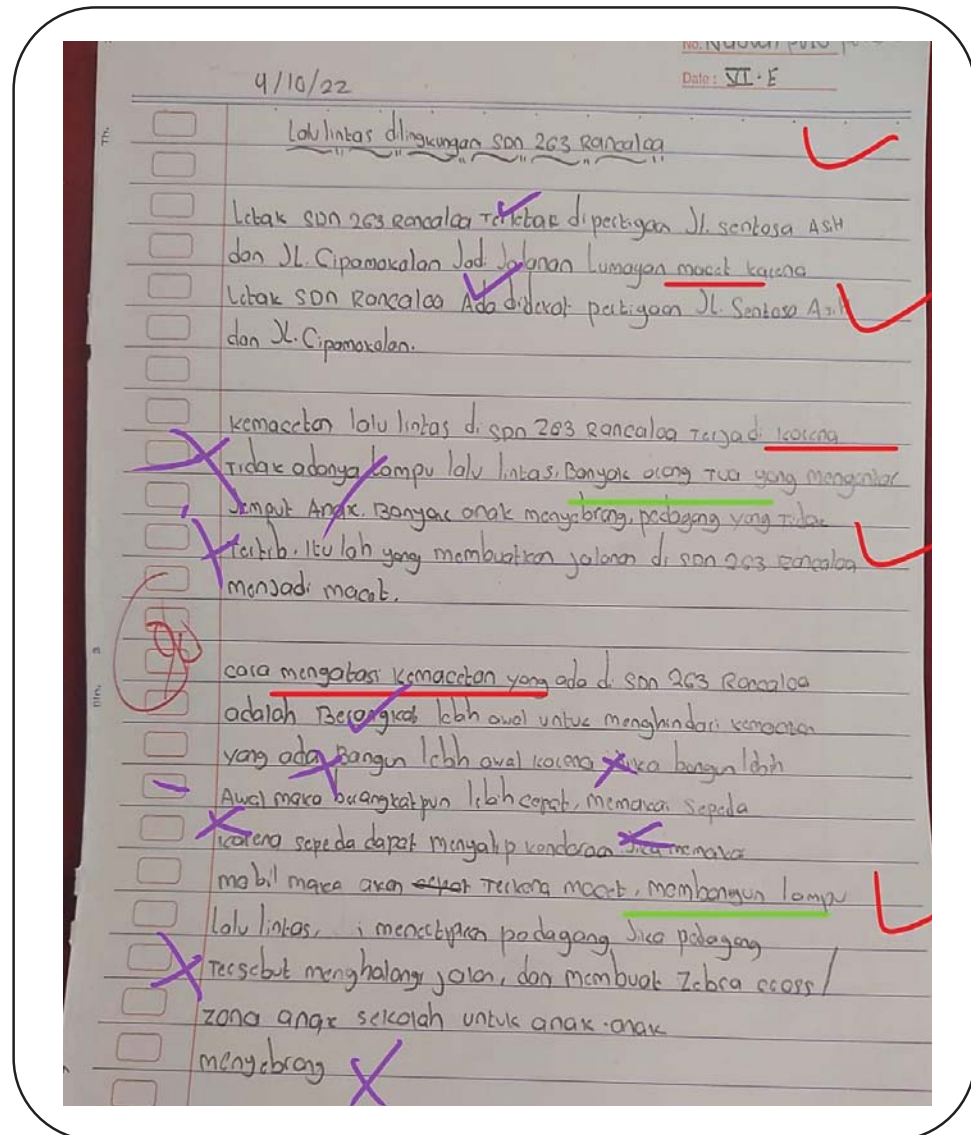 No.
4/10/22
Date : VI · E
Lalu lintas dilingkungan SDN 263 Rancaloa
Letak SDN 263 Rancaloa Terletak dipertigaan Jl. sentosa ASIH
dan JL. Cipamokolan Jad Jalanan Lumayan macet karena
Letak SDN Rancaloa Ada didekat pertigaan JL. Sentosa Asih
dan JL. Cipamokolan.
kemacetan lalu lintas di SDN 263 Rancaloa Terjadi karena
Tidak adanya Lampu lalu lintas, Banyak orang Tua yang mengantar
Jemput Anak. Banyak anak menyebrang, pedagang yang Tidak
Tertib. Itu lah yang membuatkan jalanan di SDN 263 Rancaloa
menjadi macet.
cara mengatasi kemacetan yang ada di SDN 263 Rancaloa
adalah Berangkat lebih awal untuk menghindari kemacetan
yang ada Bangun lebih awal karena Jika bangun lebih
Awal maka berangkatpun lebih cepat, memakai sepeda
karena sepeda dapat menyalip kendaraan Jika memakai
mobil maka akan Terkena macet, membangun lampu
lalu lintas, menertipkan pedagang Jika pedagang
Tersebut menghalangi jalan, dan membuat Zebra cross/
zona anak sekolah untuk anak-anak
menyebrang